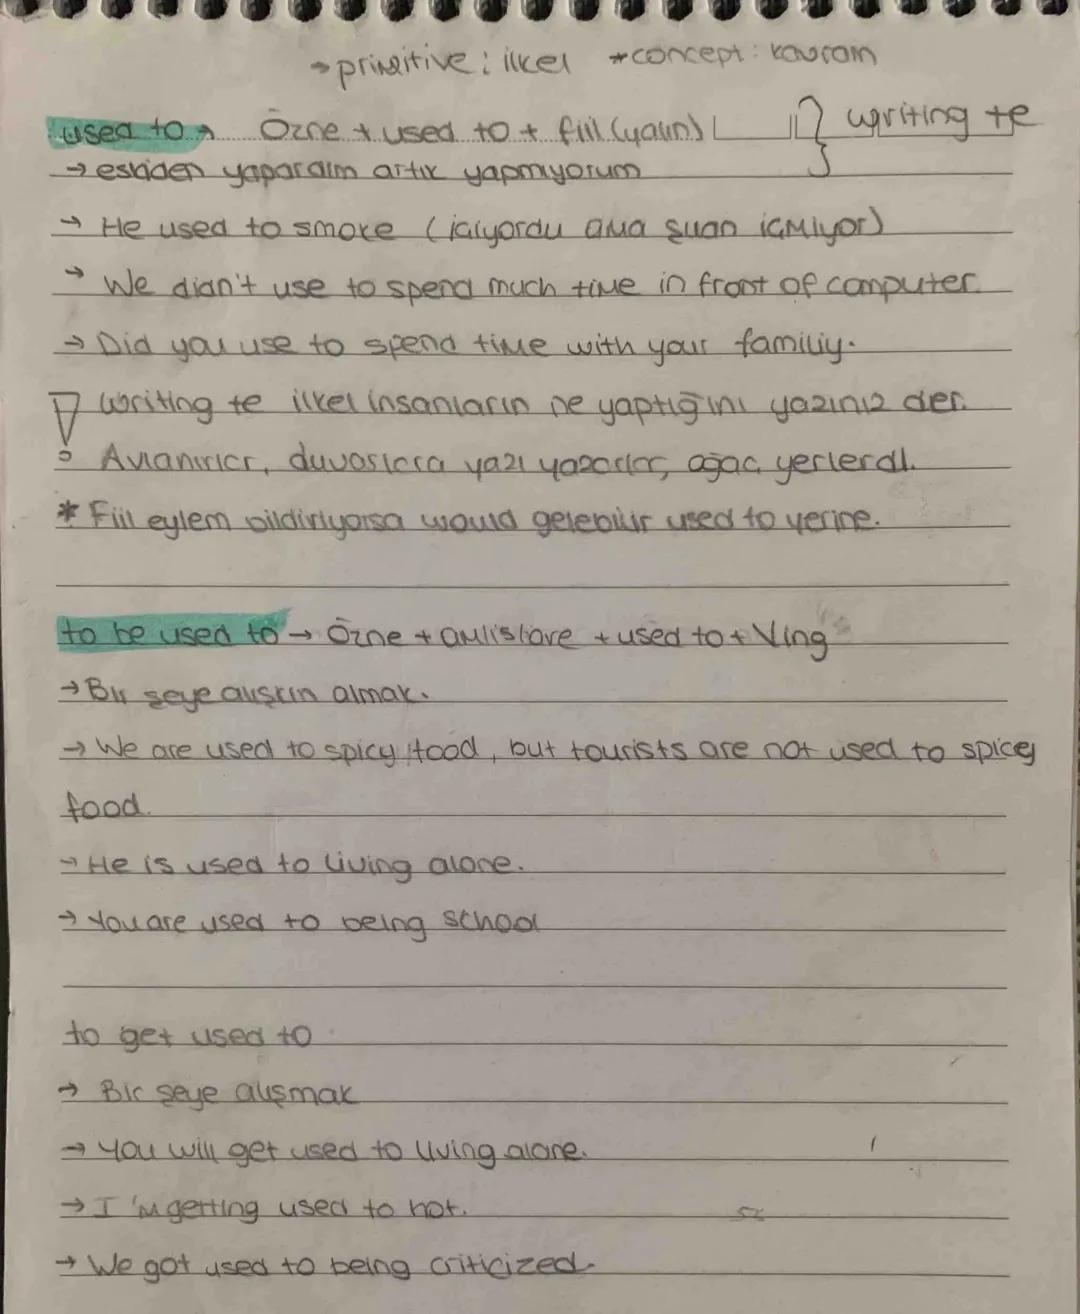 → primitive : ilkel *concept : kavram
used to → Özne + used to + fiil (yalın) } writing te
→ eskiden yapardım artık yapmıyorum
→ He used to smoke (içiyordu ama şuan içmiyor)
→ We didn't use to spend much time in front of computer.
→ Did you use to spend time with your familiy.
! Writing te ilkel insanların ne yaptığını yazınız der.
Avlanırlar, duvarlara yazı yazarlar, ağaç yerlerdi.
* Fiil eylem bildiriyorsa would gelebilir used to yerine.
to be used to → Özne + am/is/are + used to + Ving
→ Bir şeye alışkın olmak.
→ We are used to spicy food, but tourists are not used to spicey
food.
→ He is used to living alone.
→ You are used to being school
to get used to
→ Bir şeye alışmak
→ You will get used to living alone.
→ I 'm getting used to hot.
→ We got used to being criticized.